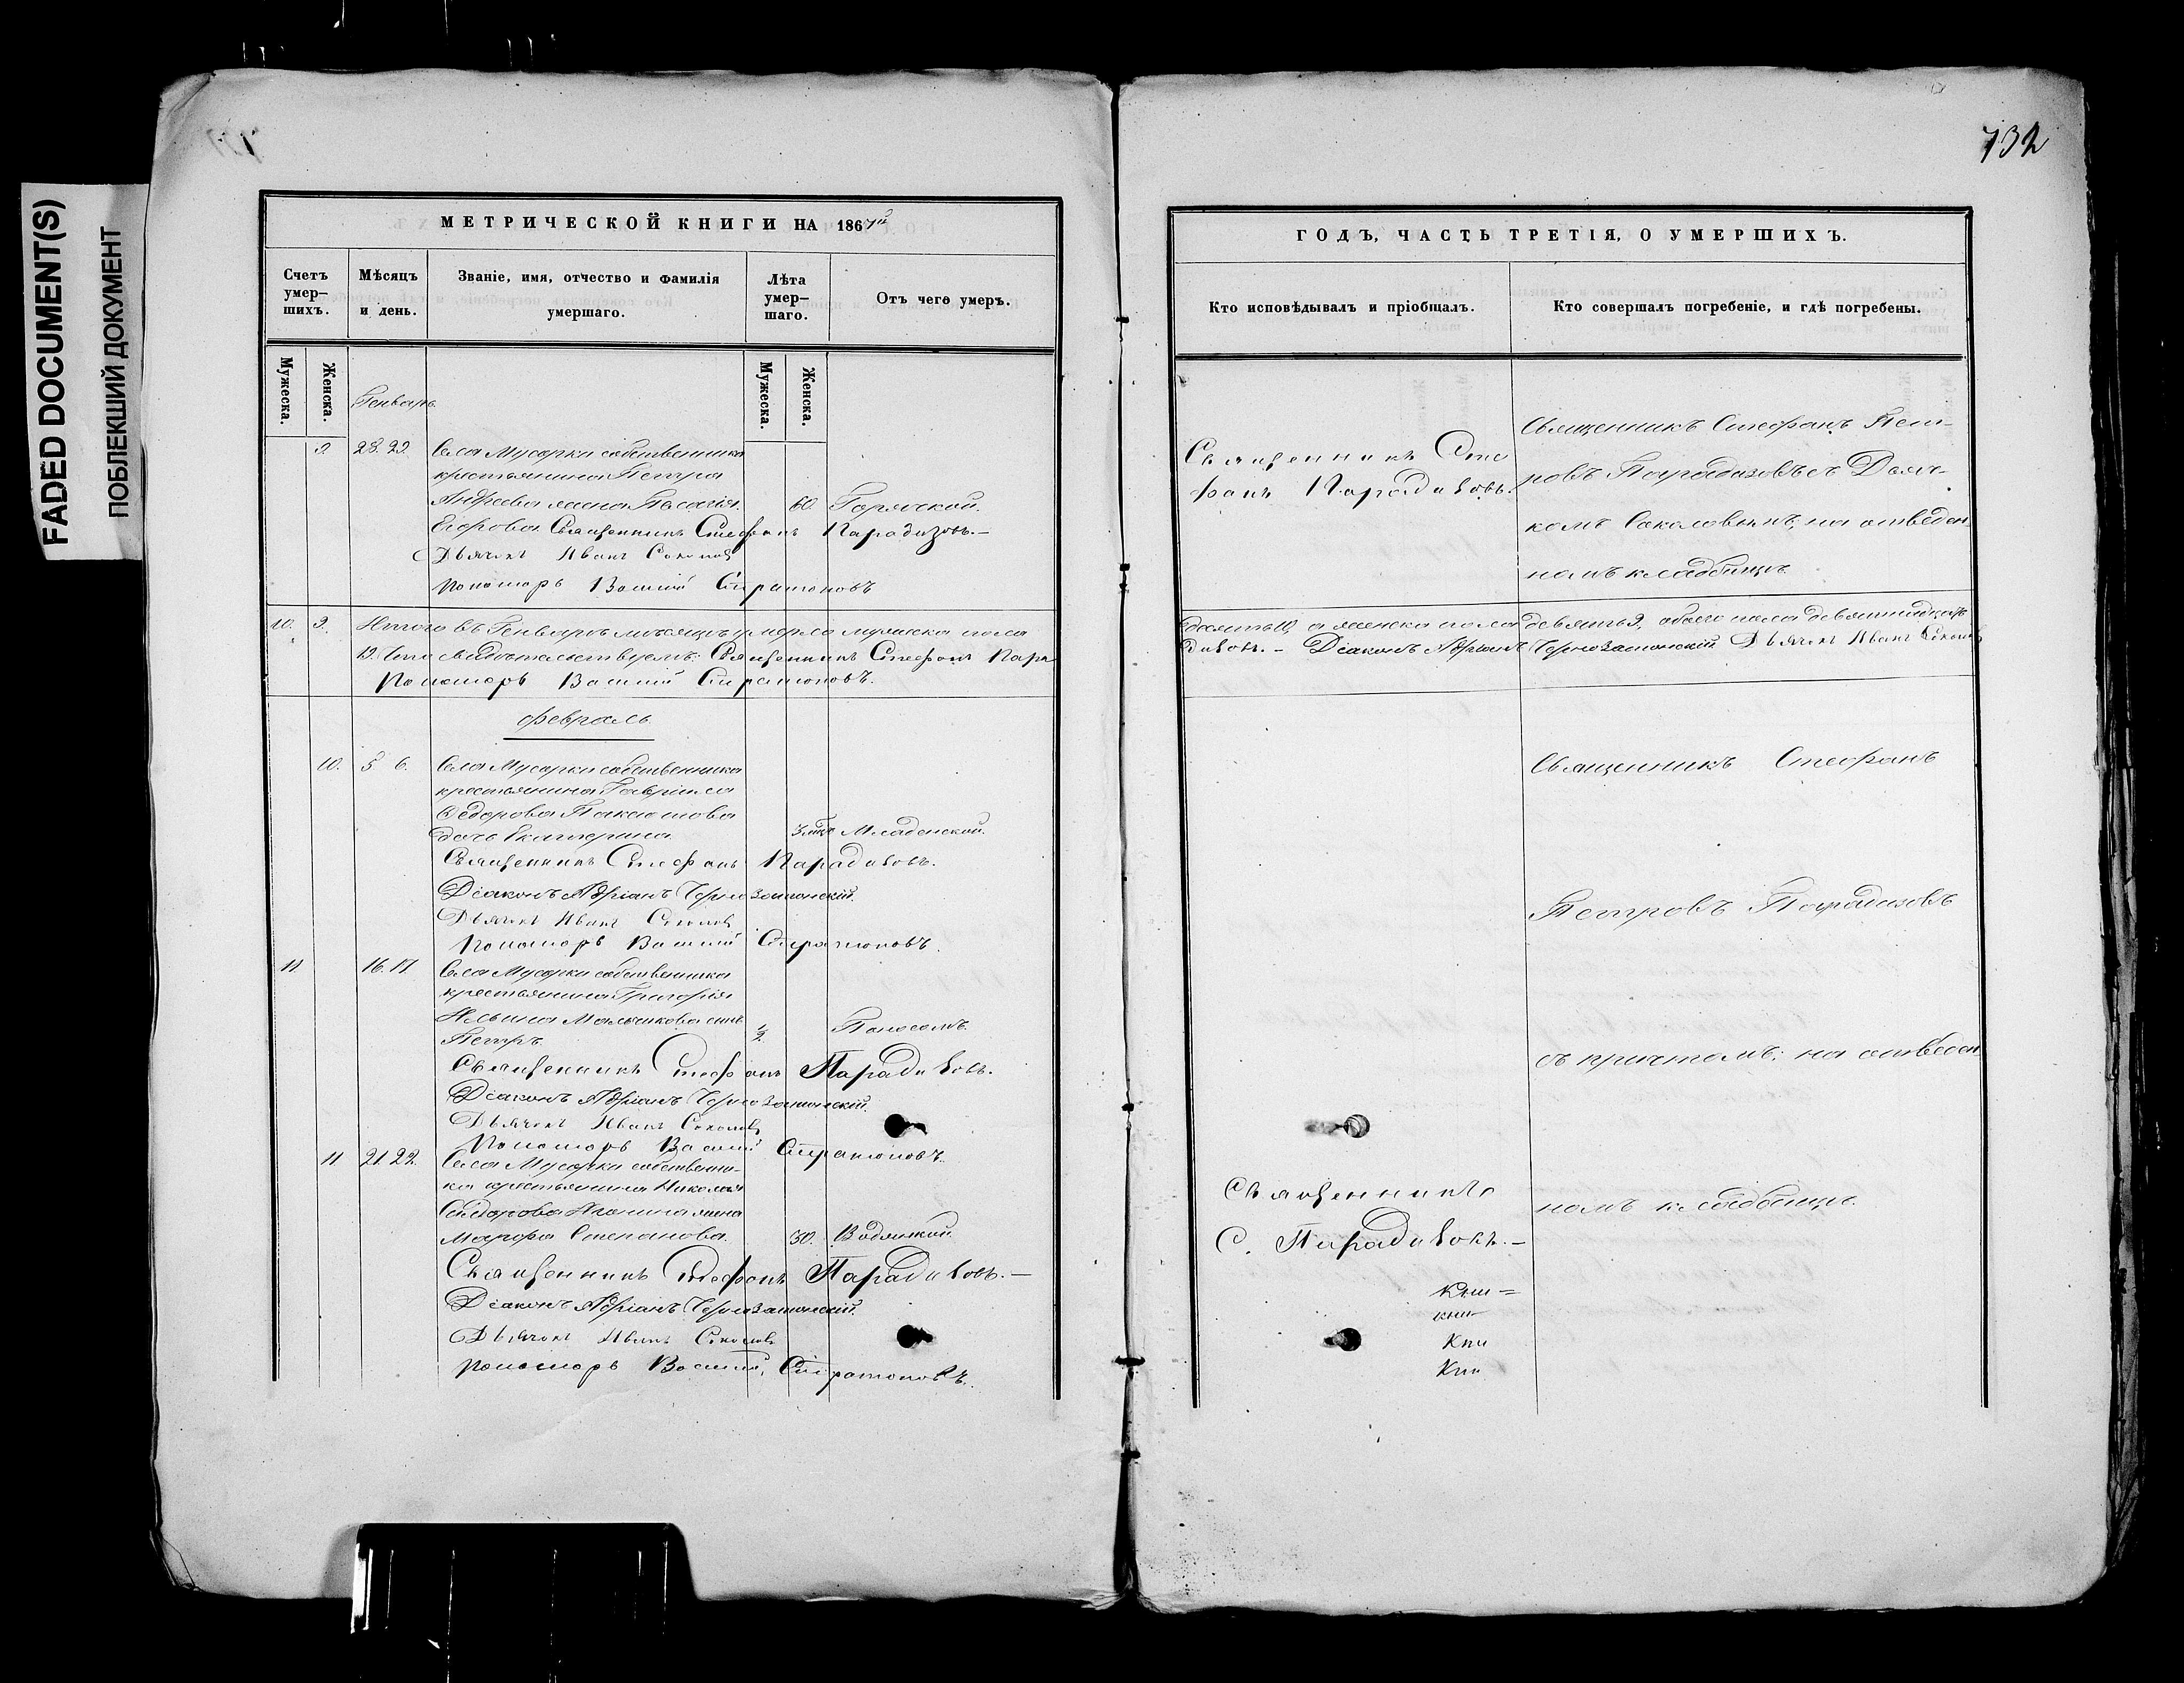 FADED DOCUMENT(S)
ПОБЛЕКШИЙ ДОКУМЕНТ
МЕТРИЧЕСКОЙ КНИГИ НА 1867й
Счетъ умер-шихъ.
Мѣсяцъ и день.
Званіе, имя, отчество и фамилія умершаго.
Лѣта умер-шаго.
Отъ чего умеръ.
Мужеска.
Женска.
Мужеска.
Женска.
Генварь
9. 28. 29. Села Мусорки собственника
крестьянина Петра
Андреева жена Пелагія 60. Горячкой.
Егорова. Священникъ Стефанъ Парадизовъ.–
Дьячокъ Иванъ Соколовъ
Пономарь Василій Стратоновъ
10. 9. Итого въ Генварѣ мѣсяцѣ умерло мужеска пола
19. Что свидѣтельствуемъ: Священникъ Стефанъ Пара
Пономарь Василій Стратоновъ.
Февраль
10. 5 6. Села Мусорки собственника
крестьянина Гавріила
Федорова
дочь Екатерина. Младенской.
Священникъ Стефанъ Парадизовъ.
Діаконъ Адріанъ Чернозатонскій.
Дьячокъ Иванъ Соколовъ
Пономарь Василій Стратоновъ.
11. 16. 17. Села Мусорки собственника
крестьянина Григорія
Ильина сынъ
Петръ. 1/2 Поносомъ.
Священникъ Стефанъ Парадизовъ.
Діаконъ Адріанъ Чернозатонскій.
Дьячокъ Иванъ Соколовъ
Пономарь Василій Стратоновъ.
11 21. 22. Села Мусорки собственни-
ка крестьянина Николая
Сидорова жена
Марфа Степанова. 30. Водянкой.
Священникъ Стефанъ Парадизовъ.–
Діаконъ Адріанъ Чернозатонскій.
Дьячокъ Иванъ Соколовъ
Пономарь Василій Стратоновъ.
732
ГОДЪ, ЧАСТЬ ТРЕТІЯ, О УМЕРШИХЪ.
Кто исповѣдывалъ и пріобщалъ.
Кто совершалъ погребеніе, и гдѣ погребены.
Священникъ Сте
фанъ Парадизовъ.
Священникъ Стефанъ Пет-
ровъ Парадизовъ съ Дьяч-
комъ Соколовымъ; на отведен
номъ кладбищѣ.
десять 10, а женска пола девять 9, обоего пола девятнадцать
дизовъ.– Діаконъ Адріанъ Чернозатонскій Дьячокъ Иванъ Соколовъ
Священникъ Стефанъ
Петровъ Парадизовъ
съ причтомъ; на отведен
номъ кладбищѣ.
Священникъ
С. Парадизовъ.–